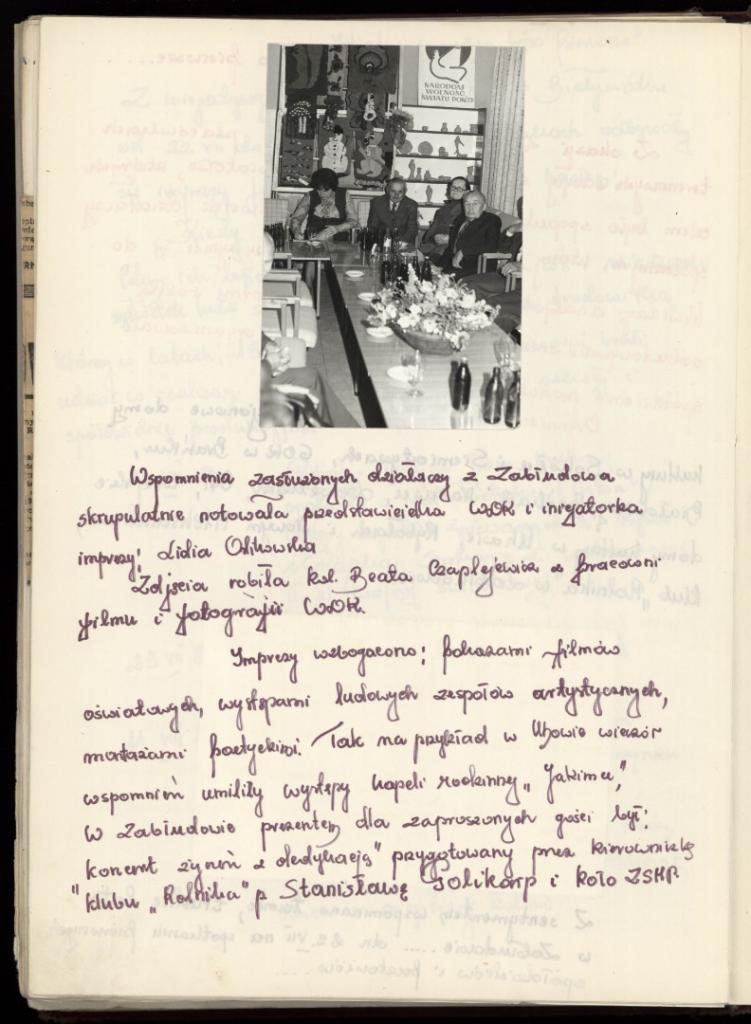 NARODOM
WOLNOŚĆ
ŚWIATU POKÓJ
Wspomnienia zasłużonych działaczy z Zabłudowa
skrupulatnie notowała przedstawicielka WDK i inicjatorka
imprezy: Lidia
Zdjęcia robiła kol. Beata Czaplejewicz z pracowni
filmu i fotografii WDK.
Imprezy wzbogacono: pokazami filmów
oświatowych, występami ludowych zespołów artystycznych,
montażami poetyckimi. Tak na przykład w Uhowie wieczór
wspomnień umiliły występy kapeli rodzinnej „Jakimu",
w Zabłudowie prezentem dla zaproszonych gości był:
"koncert życzeń z dedykacją" przygotowany przez kierowniczkę
klubu „Rolnika" p Stanisławę Solikarp i koło ZSMP.